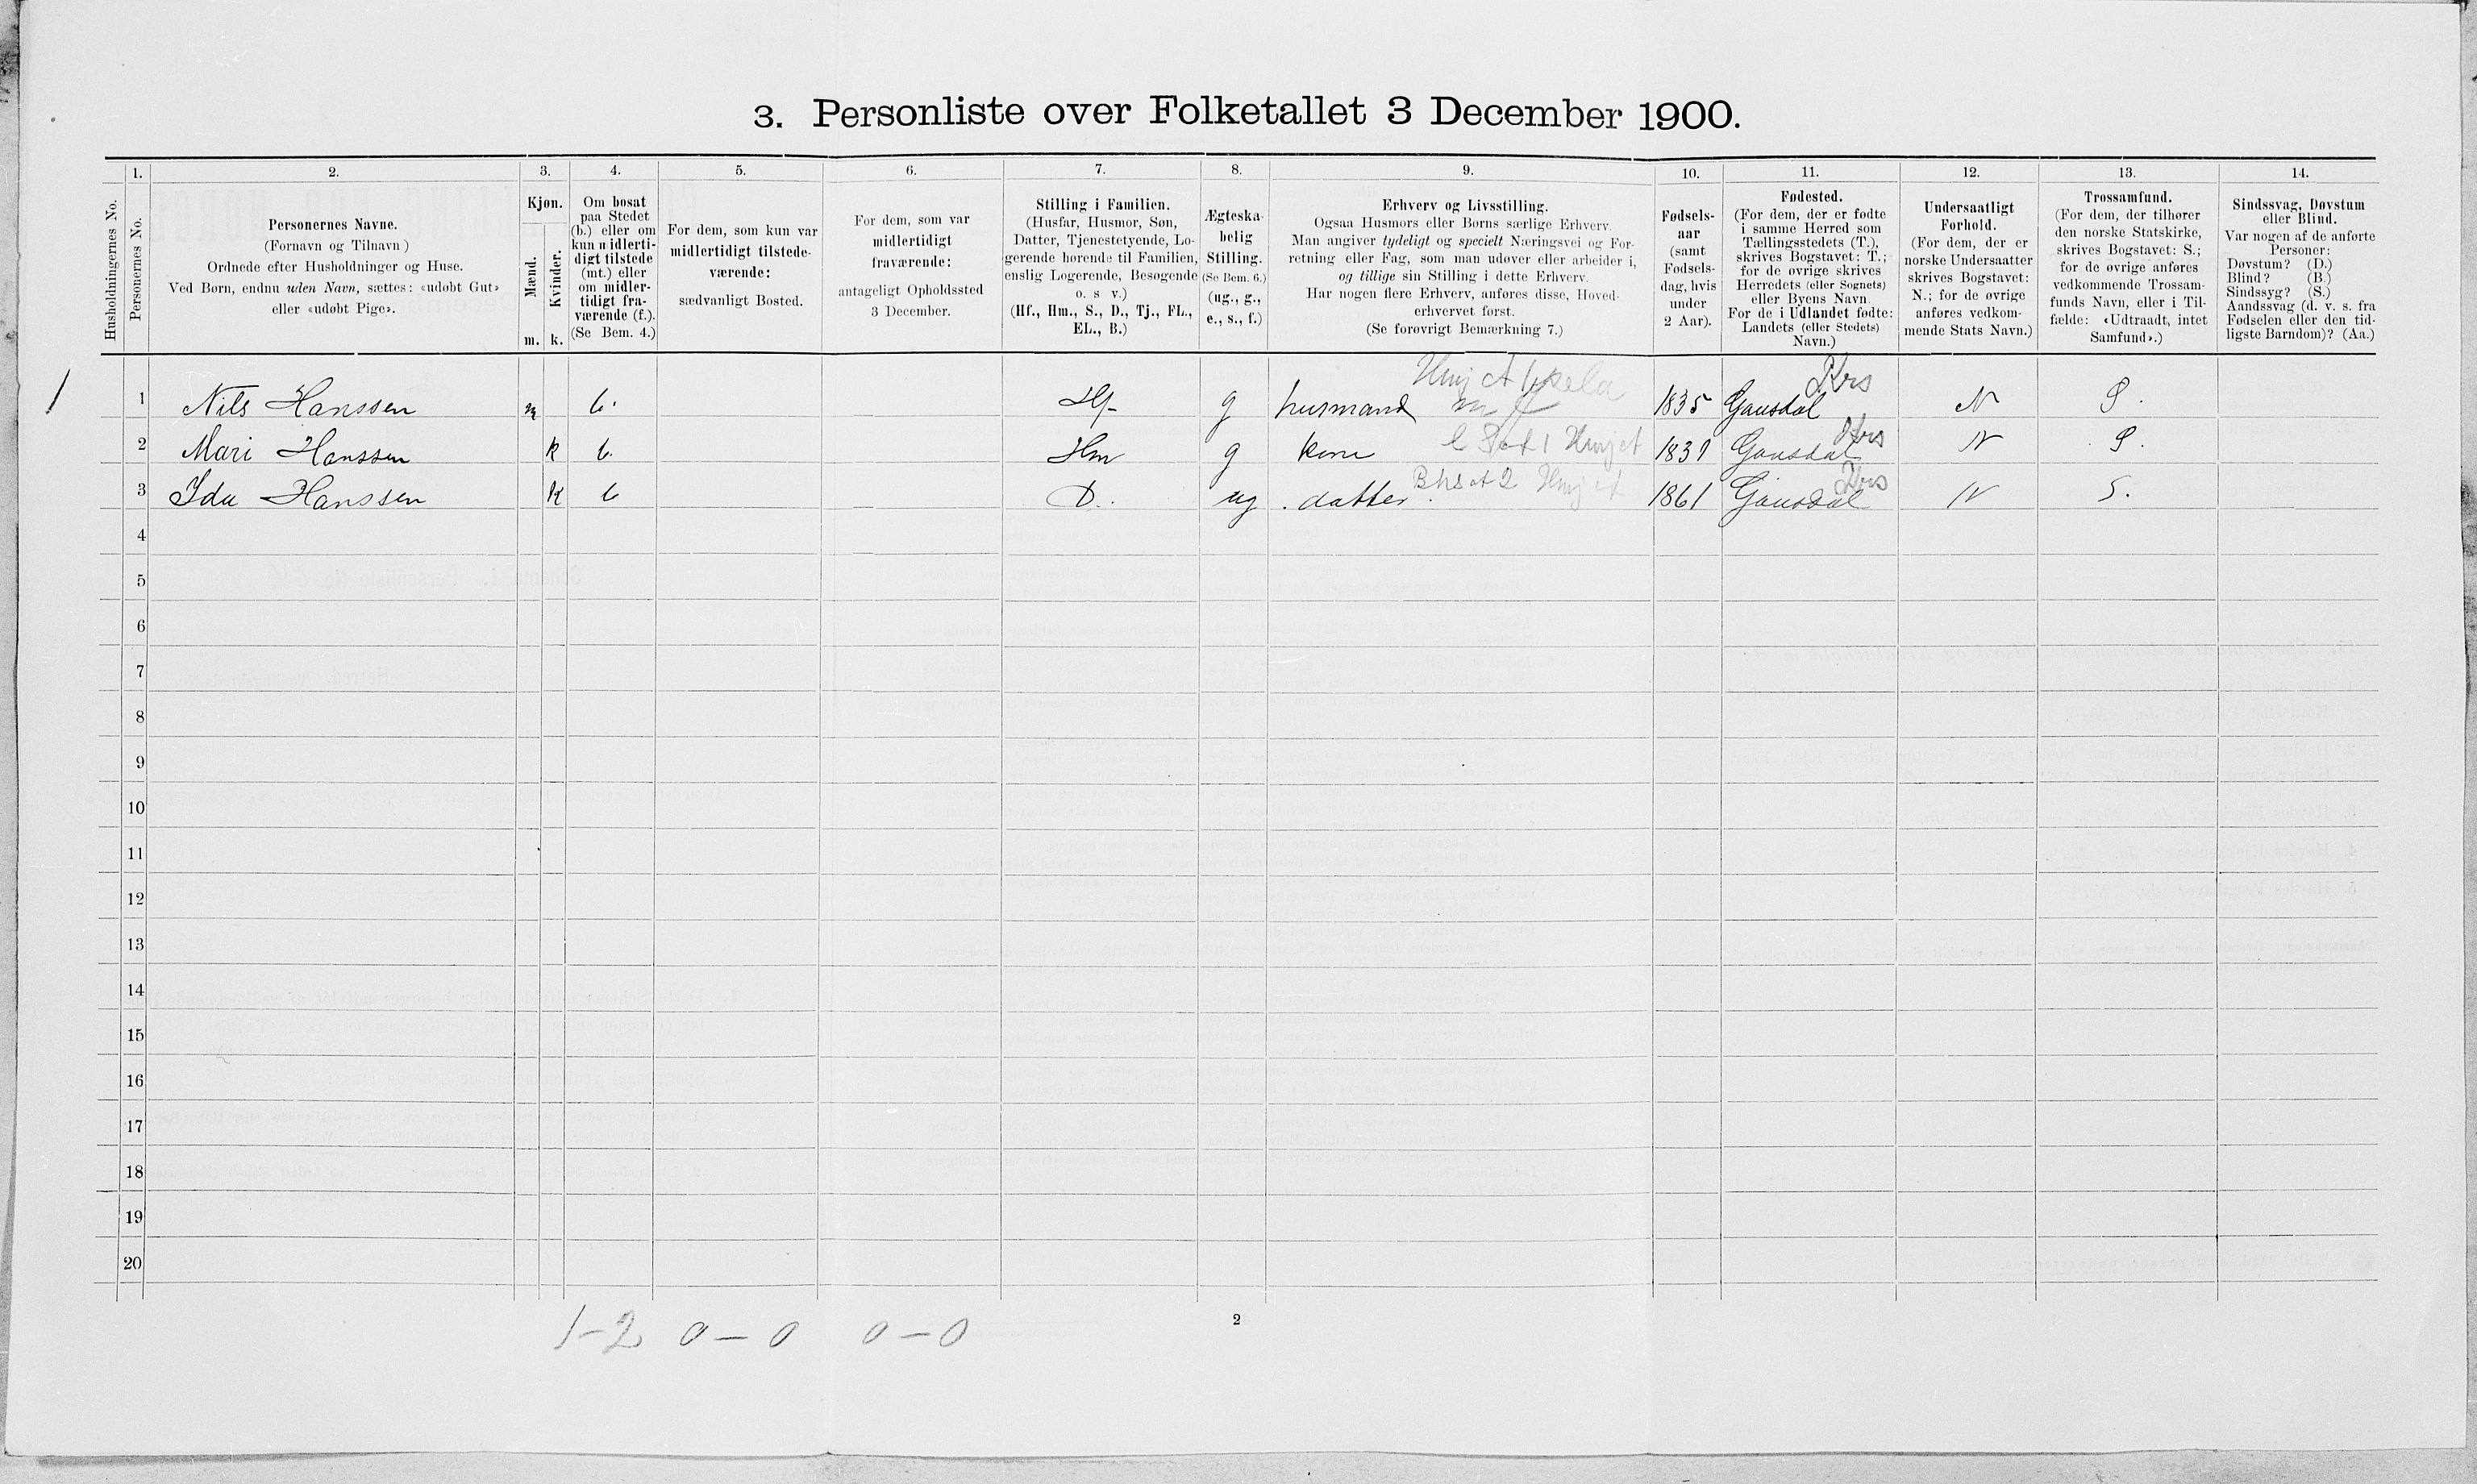 3. Personliste over Folketallet 3 December 1900.
Husholdningernes No.
1.
Personernes No.
2.
Personernes Navne.
(Fornavn og Tilnavn)
Ordnede efter Husholdninger og Huse.
Ved Børn, endnu uden Navn, sættes: «udøbt Gut»
eller «udøbt Pige».
3.
Kjøn.
Mænd.
Kvinder.
m. k.
4.
Om bosat
paa Stedet
(b.) eller om
kun midlerti-
digt tilstede
(mt.) eller
om midler-
tidigt fra-
værende (f.).
(Se Bem. 4.)
5.
For dem, som kun var
midlertidigt tilstede-
værende:
sædvanligt Bosted.
6.
For dem, som var
midlertidigt
fraværende:
antageligt Opholdssted
3 December.
7.
Stilling i Familien.
(Husfar, Husmor, Søn,
Datter, Tjenestetyende, Lo-
gerende hørende til Familien,
enslig Logerende, Besøgende
o. s v.)
(Hf., Hm., S., D., Tj., FL.,
EL., B.)
8.
Ægteska-
belig
Stilling.
(Se Bem. 6.)
(ug., g.,
e., s., f.)
9.
Erhverv og Livsstilling.
Ogsaa Husmors eller Børns særlige Erhverv.
Man angiver tydeligt og specielt Næringsvei og For-
retning eller Fag, som man udøver eller arbeider i,
og tillige sin Stilling i dette Erhverv.
Har nogen flere Erhverv, anføres disse, Hoved-
erhvervet først.
(Se forøvrigt Bemærkning 7.)
10.
Fødsels-
aar
(samt
Fødsels-
dag, hvis
under
2 Aar).
11.
Fødested.
(For dem, der er fødte
i samme Herred som
Tællingsstedets (T.),
skrives Bogstavet: T.;
for de øvrige skrives
Herredets (eller Sognets)
eller Byens Navn.
For de i Udlandet fødte:
Landets (eller Stedets)
Navn.)
12.
Undersaatligt
Forhold.
(For dem, der er
norske Undersaatter
skrives Bogstavet:
N.; for de øvrige
anføres vedkom-
mende Stats Navn.)
13.
Trossamfund.
(For dem, der tilhører
den norske Statskirke,
skrives Bogstavet: S.;
for de øvrige anføres
vedkommende Trossam-
funds Navn, eller i Til-
fælde: «Udtraadt, intet
Samfund».)
14.
Sindssvag, Døvstum
eller Blind.
Var nogen af de anførte
Personer:
Døvstum? (D.)
Blind? (B.)
Sindssyg? (S.)
Aandssvag (d. v. s. fra
Fødselen eller den tid-
ligste Barndom)? (Aa.)
1 1 Nils Hanssen m b. Hf g husmand 1835 Gausdal N S.
2 Mari Hanssen k b. Hm g kone Gausdal N S.
3 Ida Hanssen k b D. ug . datter 1861 Gausdal N S.
4
5
6
7
8
9
10
11
12
13
14
15
16
17
18
19
20
1-2 0-0 0-0
2